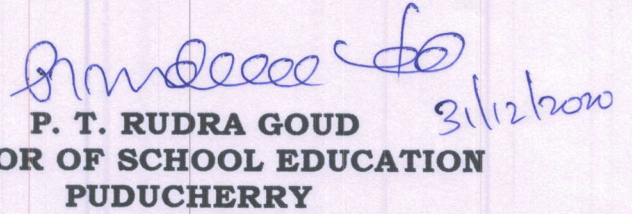 31/12/2020
P. T. RUDRA GOUD
OR OF SCHOOL EDUCATION
PUDUCHERRY